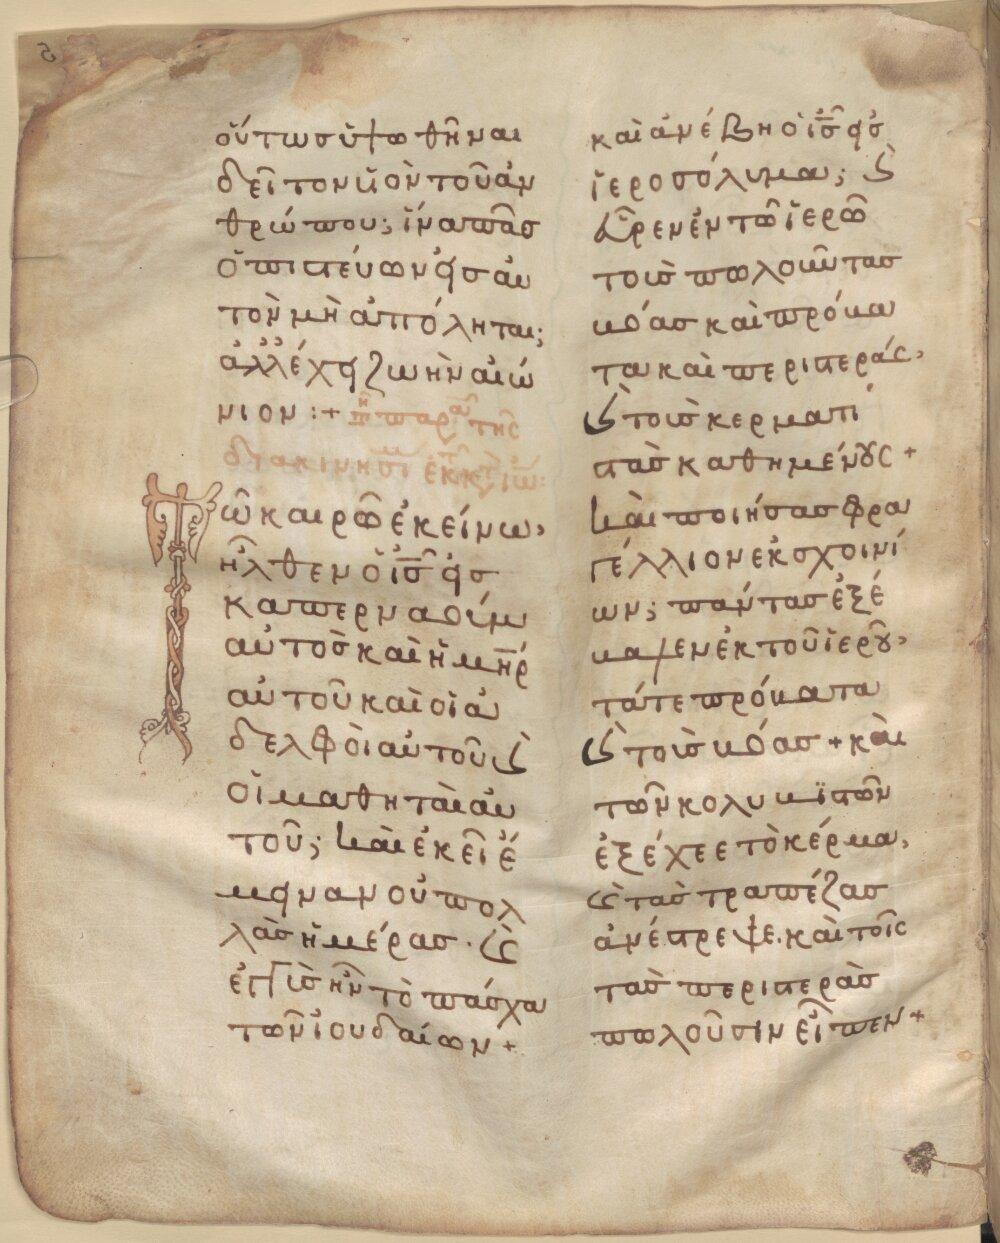 οὕτωσ ὑψωθῆναι
δεῖ τὸν ὑϊὸν τοῦ ἀν
θρώπου; ἵνα πᾶσ
ὁ πιστεύων εἰσ αυ
τὸν μὴ ἀπόληται;
ἀλλ ἔχει ζωὴν αἰώ
νιον :+
διακινησί
Τῶ καιρῶ ἐκείνω,
ἦλθεν ὁ ἰσ εἰσ
καπερναούμ
αὐτὸσ καὶ ἡ μηρ
αὐτοῦ καὶ οἱ ἀ
δελφοὶ αὐτοῦ ϛ
οἱ μαθηταὶ αυ
τοῦ; καὶ ἐκεῖ ἔ
μειναν οὐ πολ
λὰσ ἡμέρασ · ϛ
ἐγγὺσ ἦν τὸ πάσχα
τῶν ἰουδαίων +
καὶ ἀνέβη ὁ ἰσ εἰσ
ἱεροσόλυμα; ϛ
εὗρεν ἐν τῶ ἱερῶ
τοὺσ πωλοῦντασ
βόασ καὶ πρόβα
τα καὶ περιστεράς,
ϛ τοὺσ κερματι
στὰσ καθημένους +
καὶ ποιήσασ φρα
γέλλιον ἐκ σχοινί
ων; πάντασ ἐξέ
βαλεν ἐκ τοῦ ἱεροῦ,
τά τε πρόβατα
ϛ τοὺσ βόασ + καὶ
τῶν κολυβϊστῶν
ἐξέχεε τὸ κέρμα,
ϛ τὰσ τραπέζασ
ἀνέστρεψε. καὶ τοῖς
τὰσ περιστερὰσ
πωλοῦσιν εἶπεν +